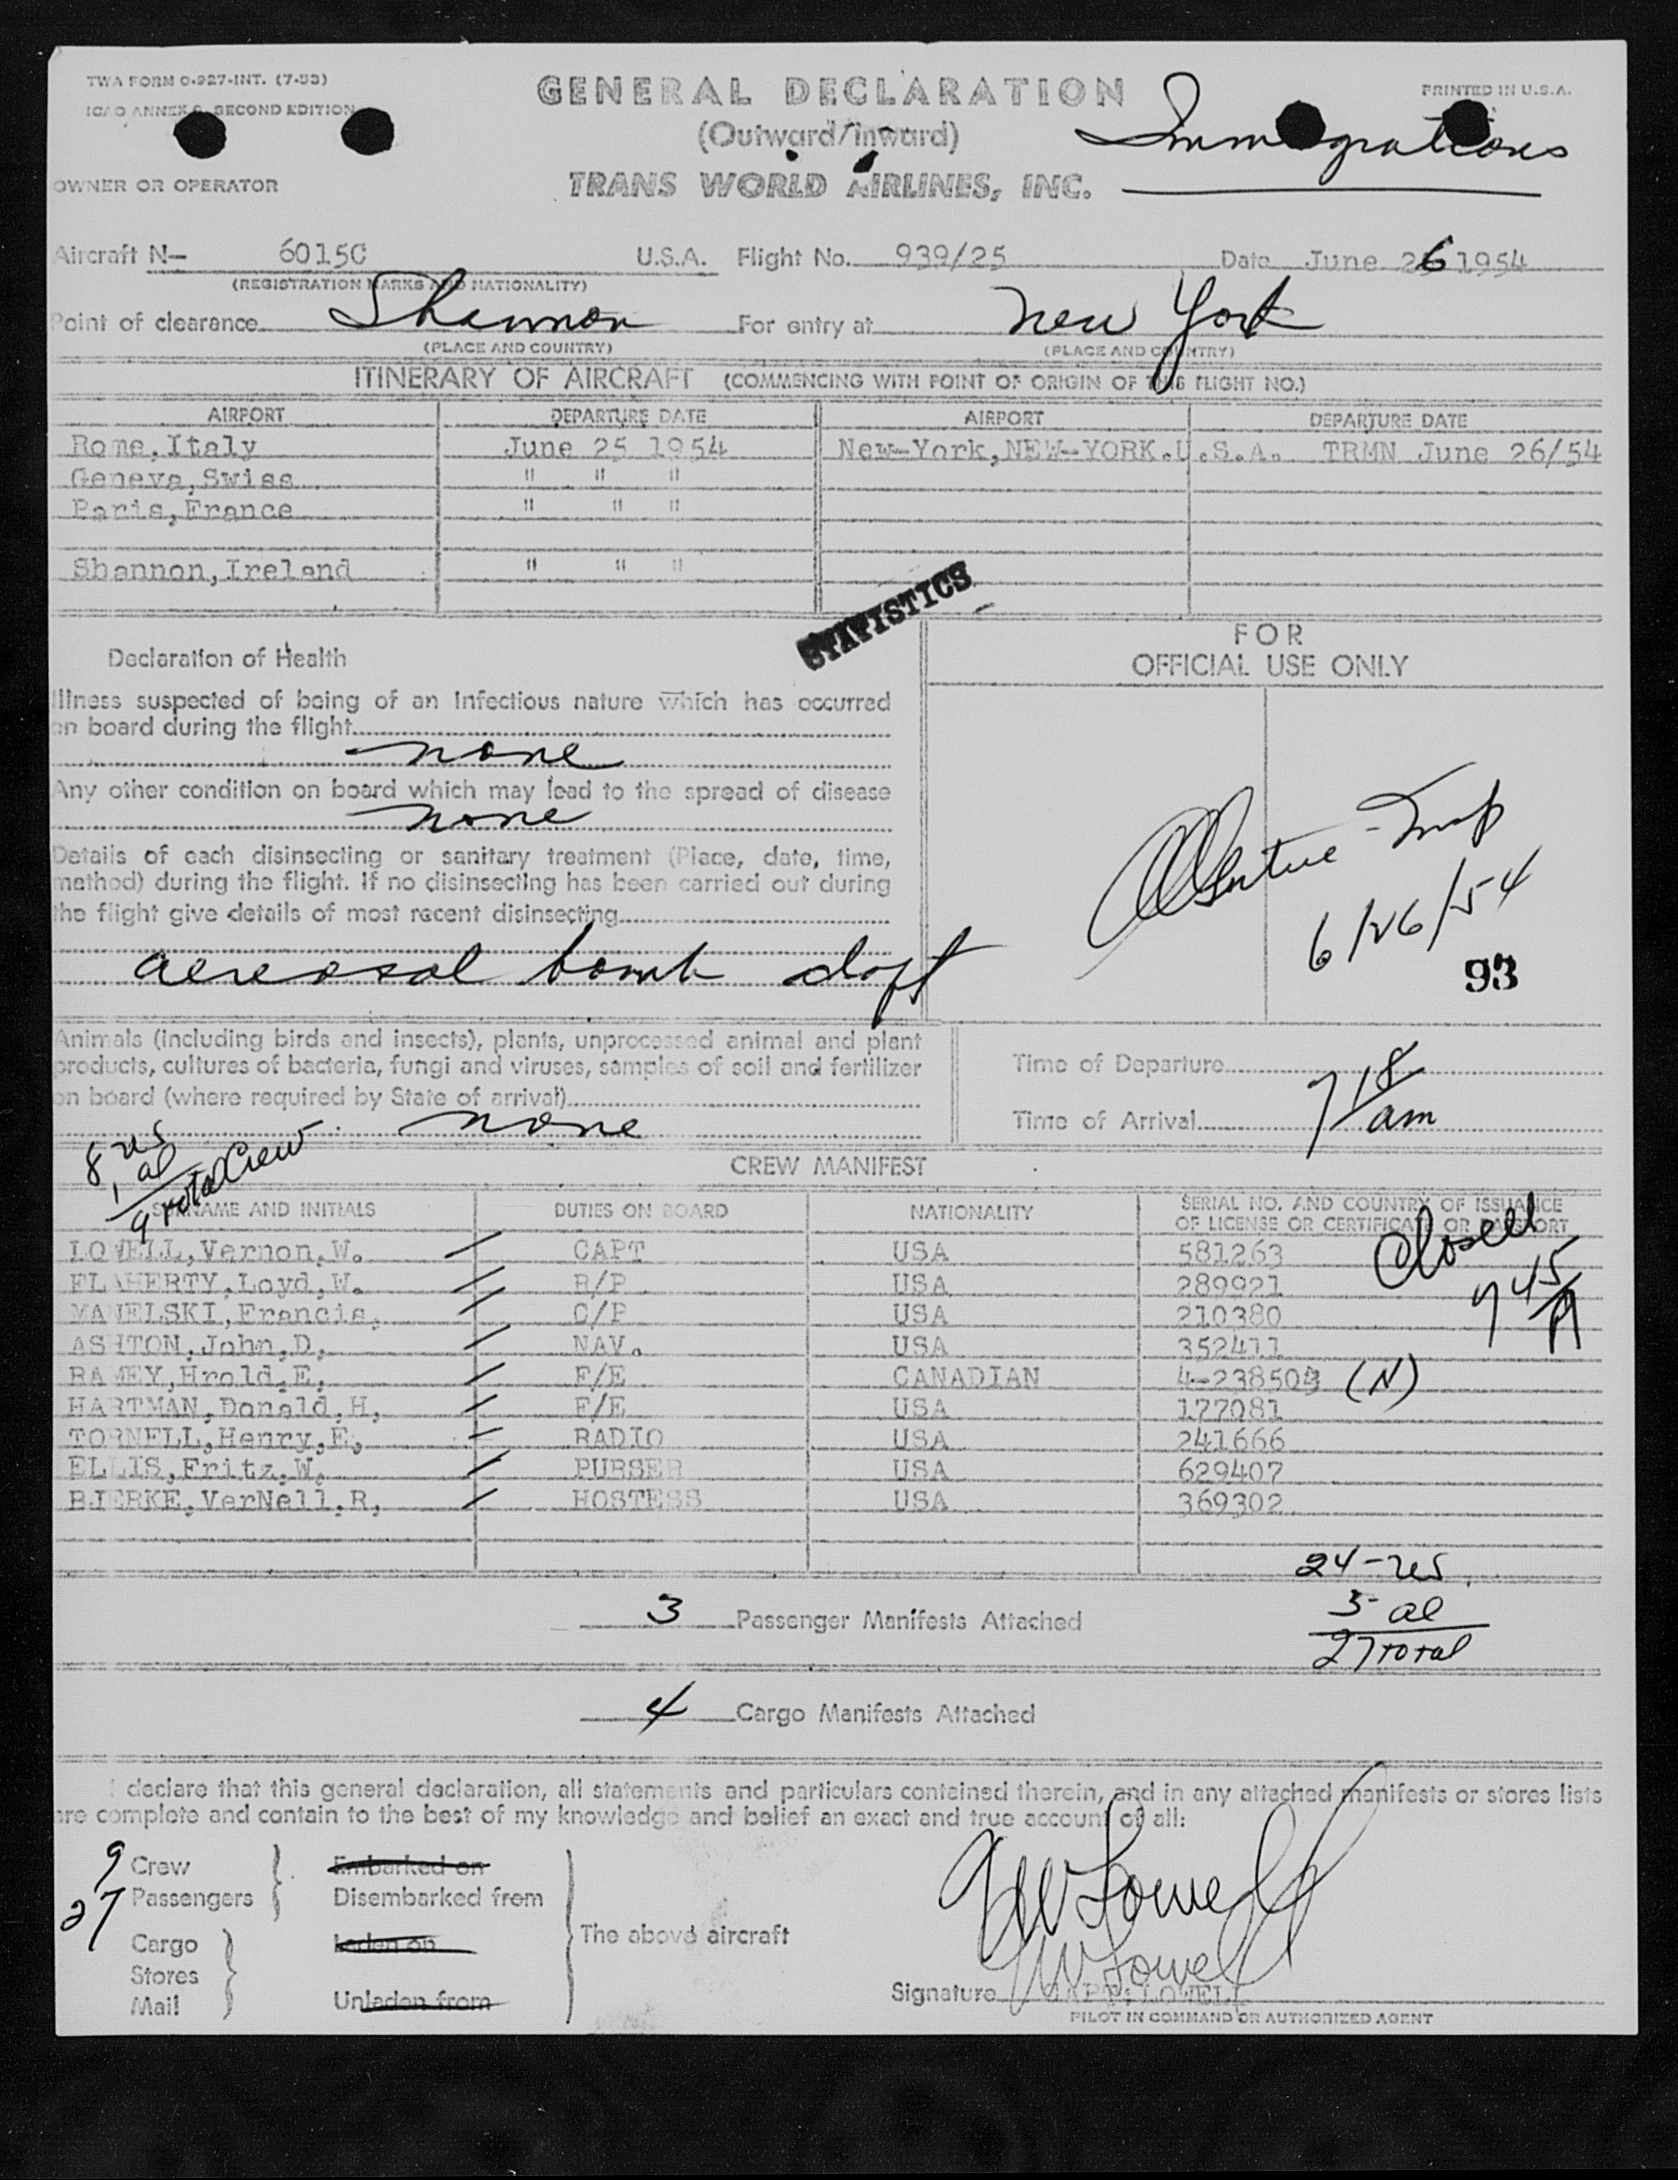 TWA FORM O-927-INT. (7-53)
ICAO ANNEX 9, SECOND EDITION
GENERAL DECLARATION
(Outward/Inward)
PRINTED IN U.S.A.
Immigrations
OWNER OR OPERATOR
TRANS WORLD AIRLINES, INC.
Aircraft N— 6015C U.S.A. Flight No. 939/25 Date June 26 1954
(REGISTRATION MARKS AND NATIONALITY)
Point of clearance Shannon For entry at New York
(PLACE AND COUNTRY) (PLACE AND COUNTRY)
ITINERARY OF AIRCRAFT (COMMENCING WITH POINT OF ORIGIN OF THIS FLIGHT NO.)
AIRPORT DEPARTURE DATE AIRPORT DEPARTURE DATE
Rome,Italy June 25 1954 New-York,NEW-YORK.U.S.A. TRMN June 26/54
Geneva,Swiss " " "
Paris,France " " "
Shannon,Ireland " " "
STATISTICS
FOR
OFFICIAL USE ONLY
Declaration of Health
Illness suspected of being of an infectious nature which has occurred
on board during the flight
none
Any other condition on board which may lead to the spread of disease
none
Details of each disinsecting or sanitary treatment (Place, date, time,
method) during the flight. If no disinsecting has been carried out during
the flight give details of most recent disinsecting
aereosol bomb
6/26/54
93
Animals (including birds and insects), plants, unprocessed animal and plant
products, cultures of bacteria, fungi and viruses, samples of soil and fertilizer
on board (where required by State of arrival)
none
Time of Departure
Time of Arrival 7 18 am
8 us
1 al
9 total Crew
CREW MANIFEST
SURNAME AND INITIALS DUTIES ON BOARD NATIONALITY SERIAL NO. AND COUNTRY OF ISSUANCE
OF LICENSE OR CERTIFICATE OR PASSPORT
Closed
7 45 A
LOWELL,Vernon,W. CAPT USA 581263
FLAHERTY,Loyd,W. R/P USA 289921
MAMELSKI,Francis, C/P USA 210380
ASHTON,John,D, NAV. USA 352411
RAMEY,Hrold,E, F/E CANADIAN 4-238503 (N)
HARTMAN,Donald,H, F/E USA 177081
TORNELL,Henry,E, RADIO USA 241666
ELLIS,Fritz,W, PURSER USA 629407
BJERKE,VerNell,R, HOSTESS USA 369302
24 - us
3 - al
27 total
3 Passenger Manifests Attached
4 Cargo Manifests Attached
I declare that this general declaration, all statements and particulars contained therein, and in any attached manifests or stores lists
are complete and contain to the best of my knowledge and belief an exact and true account of all:
9 Crew Embarked on
27 Passengers Disembarked from
The above aircraft
Cargo Laden on
Stores
Mail Unladen from
VW Lowell
VW Lowell
Signature CAPT: LOWELL
PILOT IN COMMAND OR AUTHORIZED AGENT